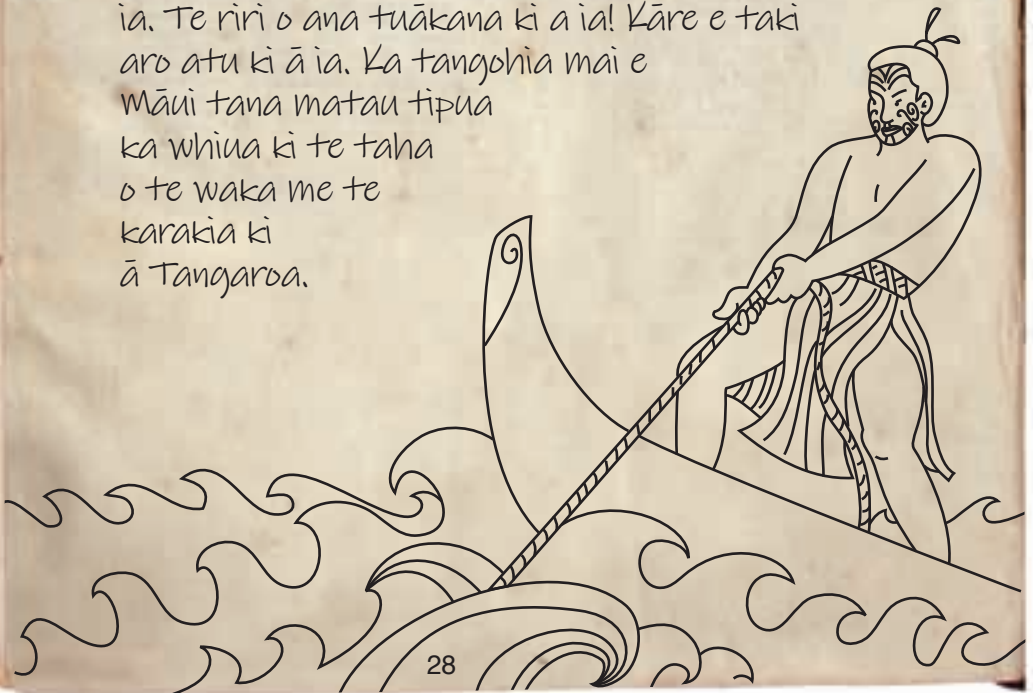 ia. Te riri o ana tuākana ki a ia! Kāre e taki
aro atu ki ā ia. Ka tangohia mai e
Māui tana matau tipua
ka whiua ki te taha
o te waka me te
karakia ki
ā Tangaroa.
28